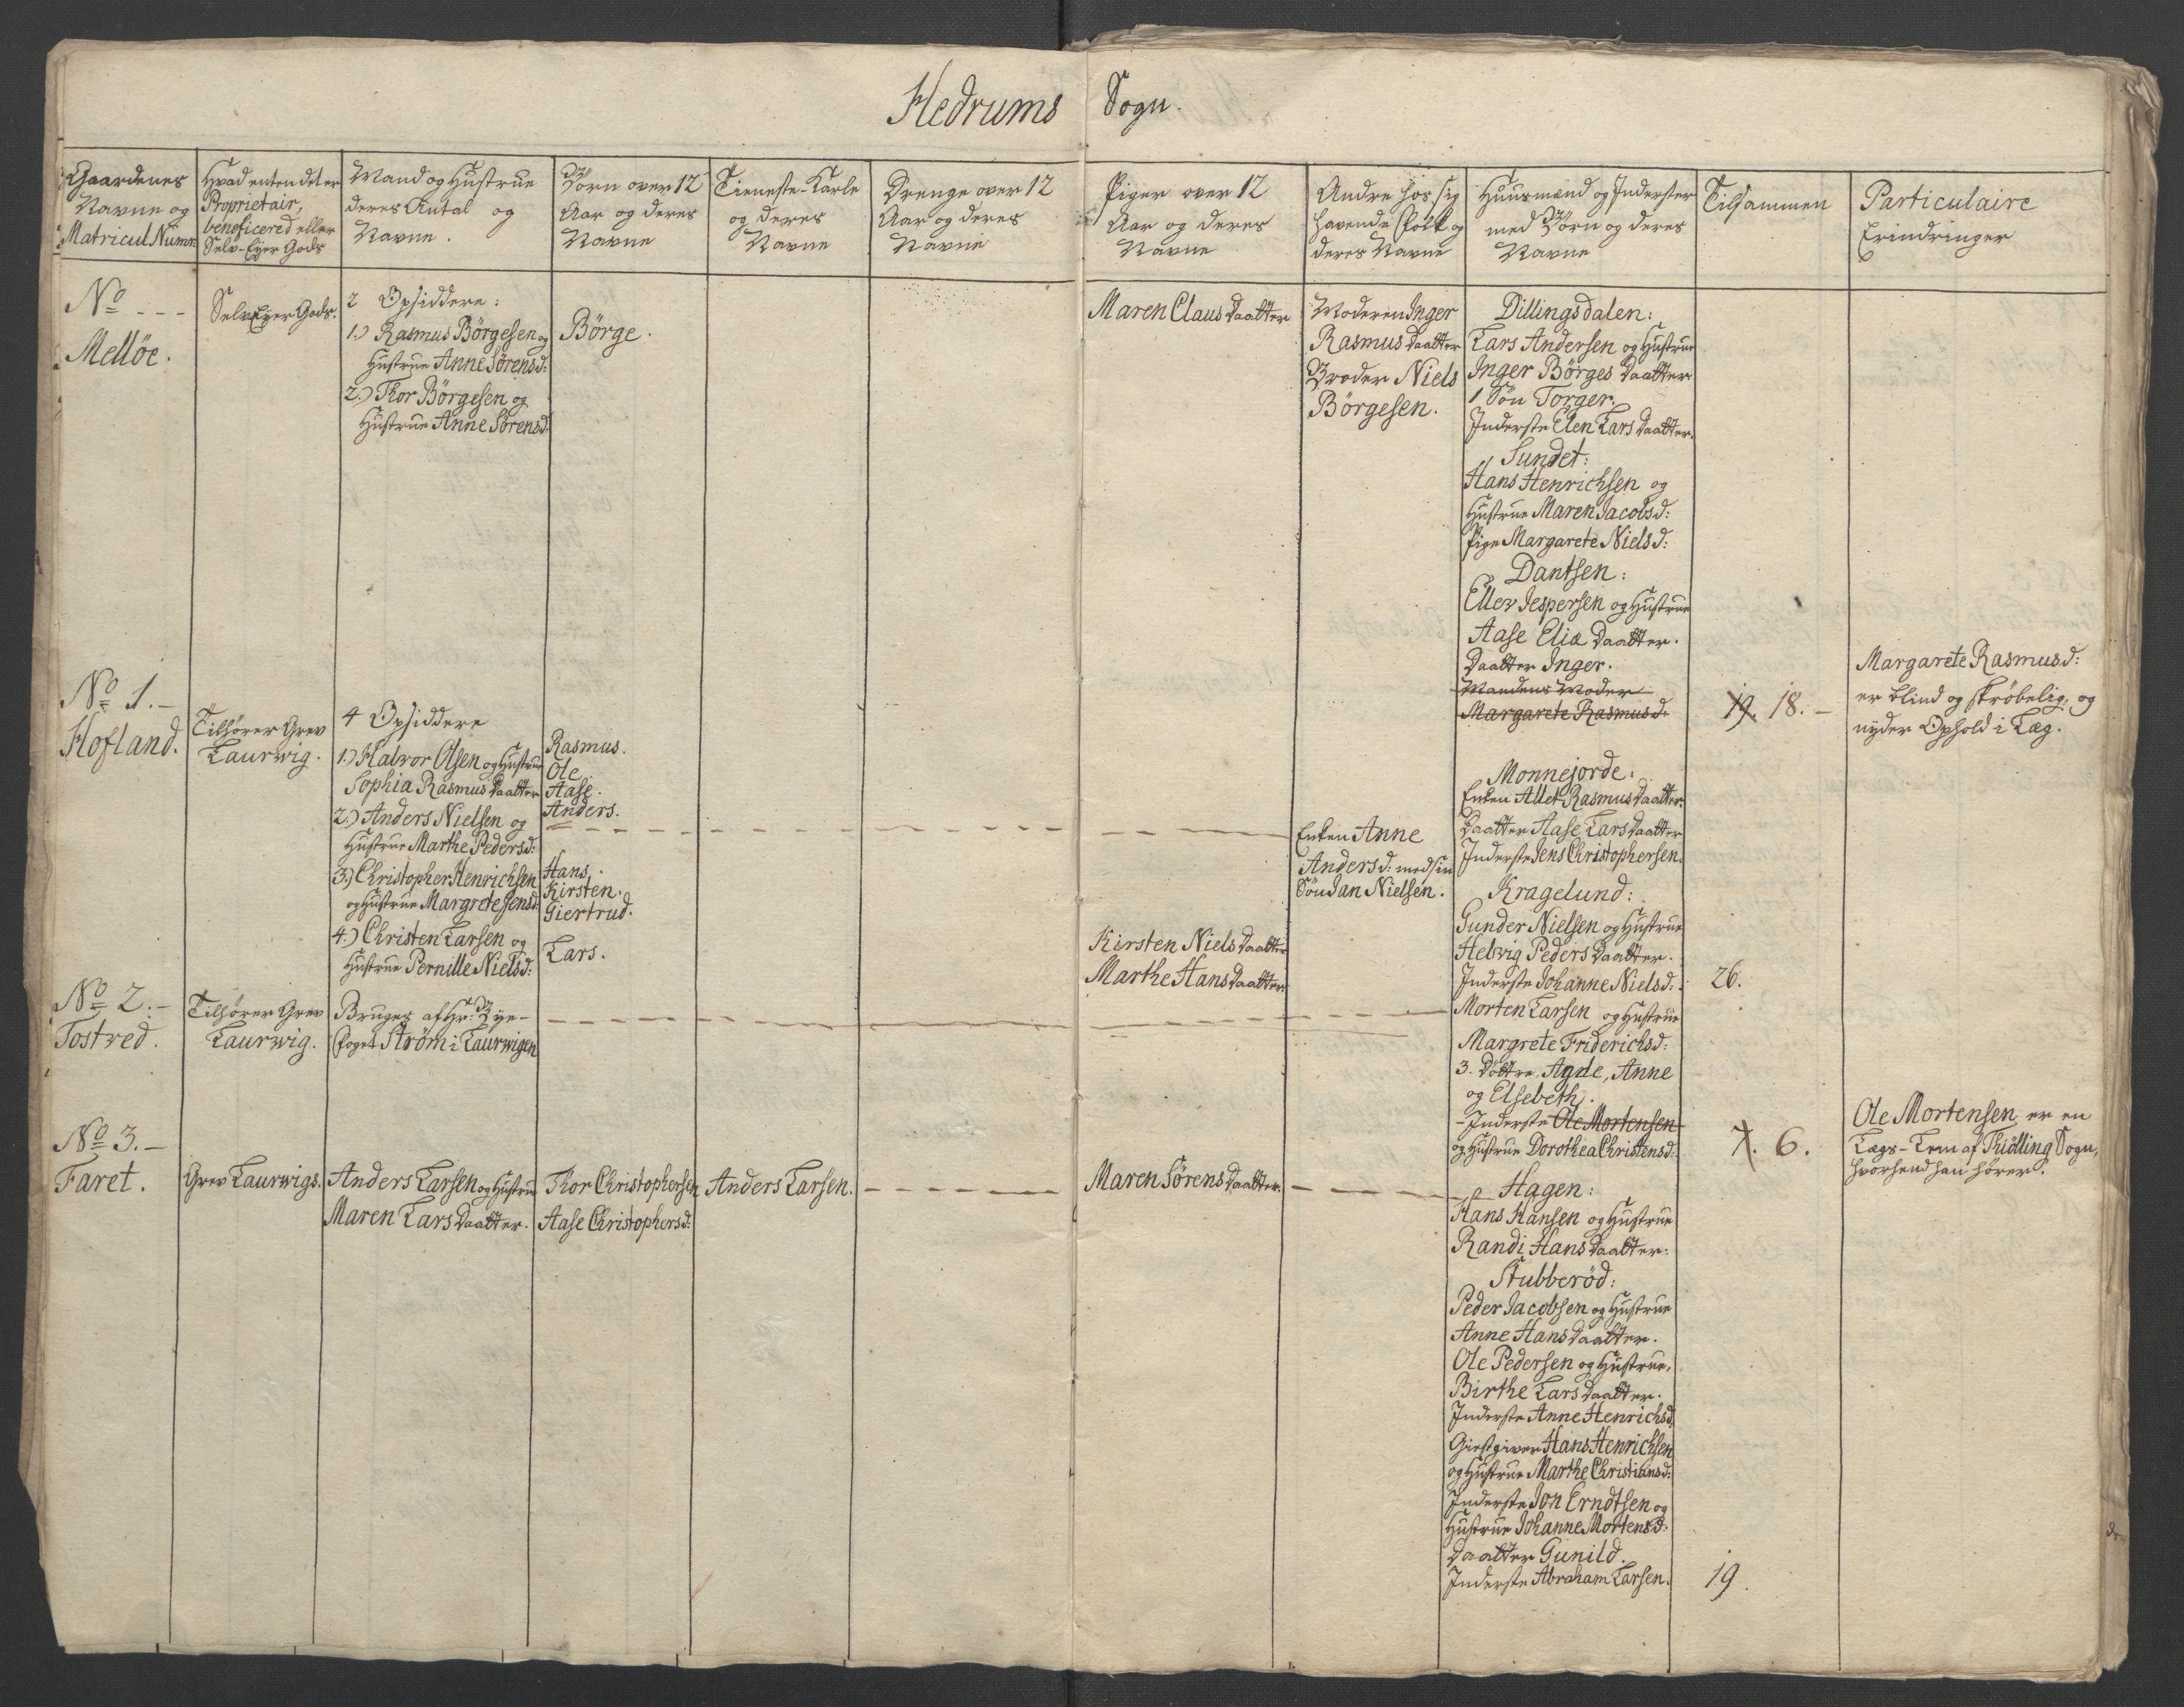 Hedrums Sogn.
Gaardenes
Navne og
Matricul Numr:
Hvad enten det er
Proprietair,
beneficered eller
Selv-Eyer Gods
Mand og Hustrue
deres Antal og
Navne.
Börn over 12
Aar og deres
Navne
Tieneste-Karle
og deres
Navne
Drenge over 12
Aar og deres
Navne
Piger over 12
Aar og deres
Navne
Andre hos sig
havende Folk og
deres Navne
Huusmænd og Inderster
med Börn og deres
Navne
Tilsammen
Particulaire
Erindringer
No - - -
Mellöe.
SelvEyer Gods.
2 Opsiddere:
1.) Rasmus Börgesen og
Hustrue Anne Sörensd:
2.) Thor Börgesen og
Hustrue Anne Sörensd:
Börge.
Maren Claus Daatter
Moderen Inger
Rasmus Daatter
Broder Niels
Börgesen.
Dillingsdalen:
Lars Andersen og Hustrue
Inger Börges Daatter
1 Sön Torger.
Inderste Elen Lars Daatter.
Sundet:
Hans Henrichsen og
Hustrue Maren Jacobsd:
Pige Margarete Nielsd:
Dantsen:
Eller Jespersen og Hustrue
Aase Eliæ Daatter.
Daatter Inger.
Mandens Moder
Margarete Rasmusd:
19. 18. -
Margarete Rasmusd:
er blind og skröbelig, og
nyder Ophold i Læg.
No 1. -
Hofland.
Tilhörer Grev
Laurwig.
4 Opsiddere
1.) Halvor Olsen og Hustrue
Sophia Rasmus Daatter
2.) Anders Nielsen og
Hustrue Marthe Pedersd:
3.) Christopher Henrichsen
og Hustrue Margrete Jensd:
4.) Christen Larsen og
Hustrue Pernille Nielsd:
Rasmus.
Ole
Aase.
Anders.
Hans.
Kirsten.
Giertrud.
Lars.
Kirsten Niels Daatter
Marthe Hans Daatter
Enken Anne
Andersd: med sin
Sön Jan Nielsen.
Monnejorde:
Enken Allet Rasmus Daatter.
Daatter Aase Lars Daatter
Inderste Jens Christophersen.
Kragelund:
Gunder Nielsen og Hustrue
Helvig Peders Daatter.
Inderste Johanne Nielsd:
26.
No 2. -
Tostved.
Tilhörer Grev
Laurwig.
Bruges af Hr: Bye-
Foget Ström i Laurwigen
Morten Larsen og Hustrue
Margrete Friderichsd:
3. Döttre. Agde, Anne
og Elsebeth.
- Inderste Ole Mortensen
og Hustrue Dorothea Christensd:
7. 6.
Ole Mortensen er en
Lægs-Lem af Thiölling Sogn,
hvorhend han hörer.
No 3. -
Faret.
Grev Laurwigs.
Anders Larsen og Hustrue
Maren Lars Daatter.
Thor Christophersen
Aase Christophersd:
Anders Larsen.
Maren Sörens Daatter.
Hagen:
Hans Hansen og Hustrue
Randi Hans Daatter.
Stubberöd:
Peder Jacobsen og Hustrue
Anne Hans Daatter.
Ole Pedersen og Hustrue,
Birthe Lars Daatter.
Inderste Anne Henrichsd.
Giestgiver Hans Henrichsen
og Hustrue Marthe Christiansd:
Inderste Jon Erndtsen og
Hustrue Johanne Mortensd.
Daatter Gunild.
Inderste Abraham Larsen.
19.